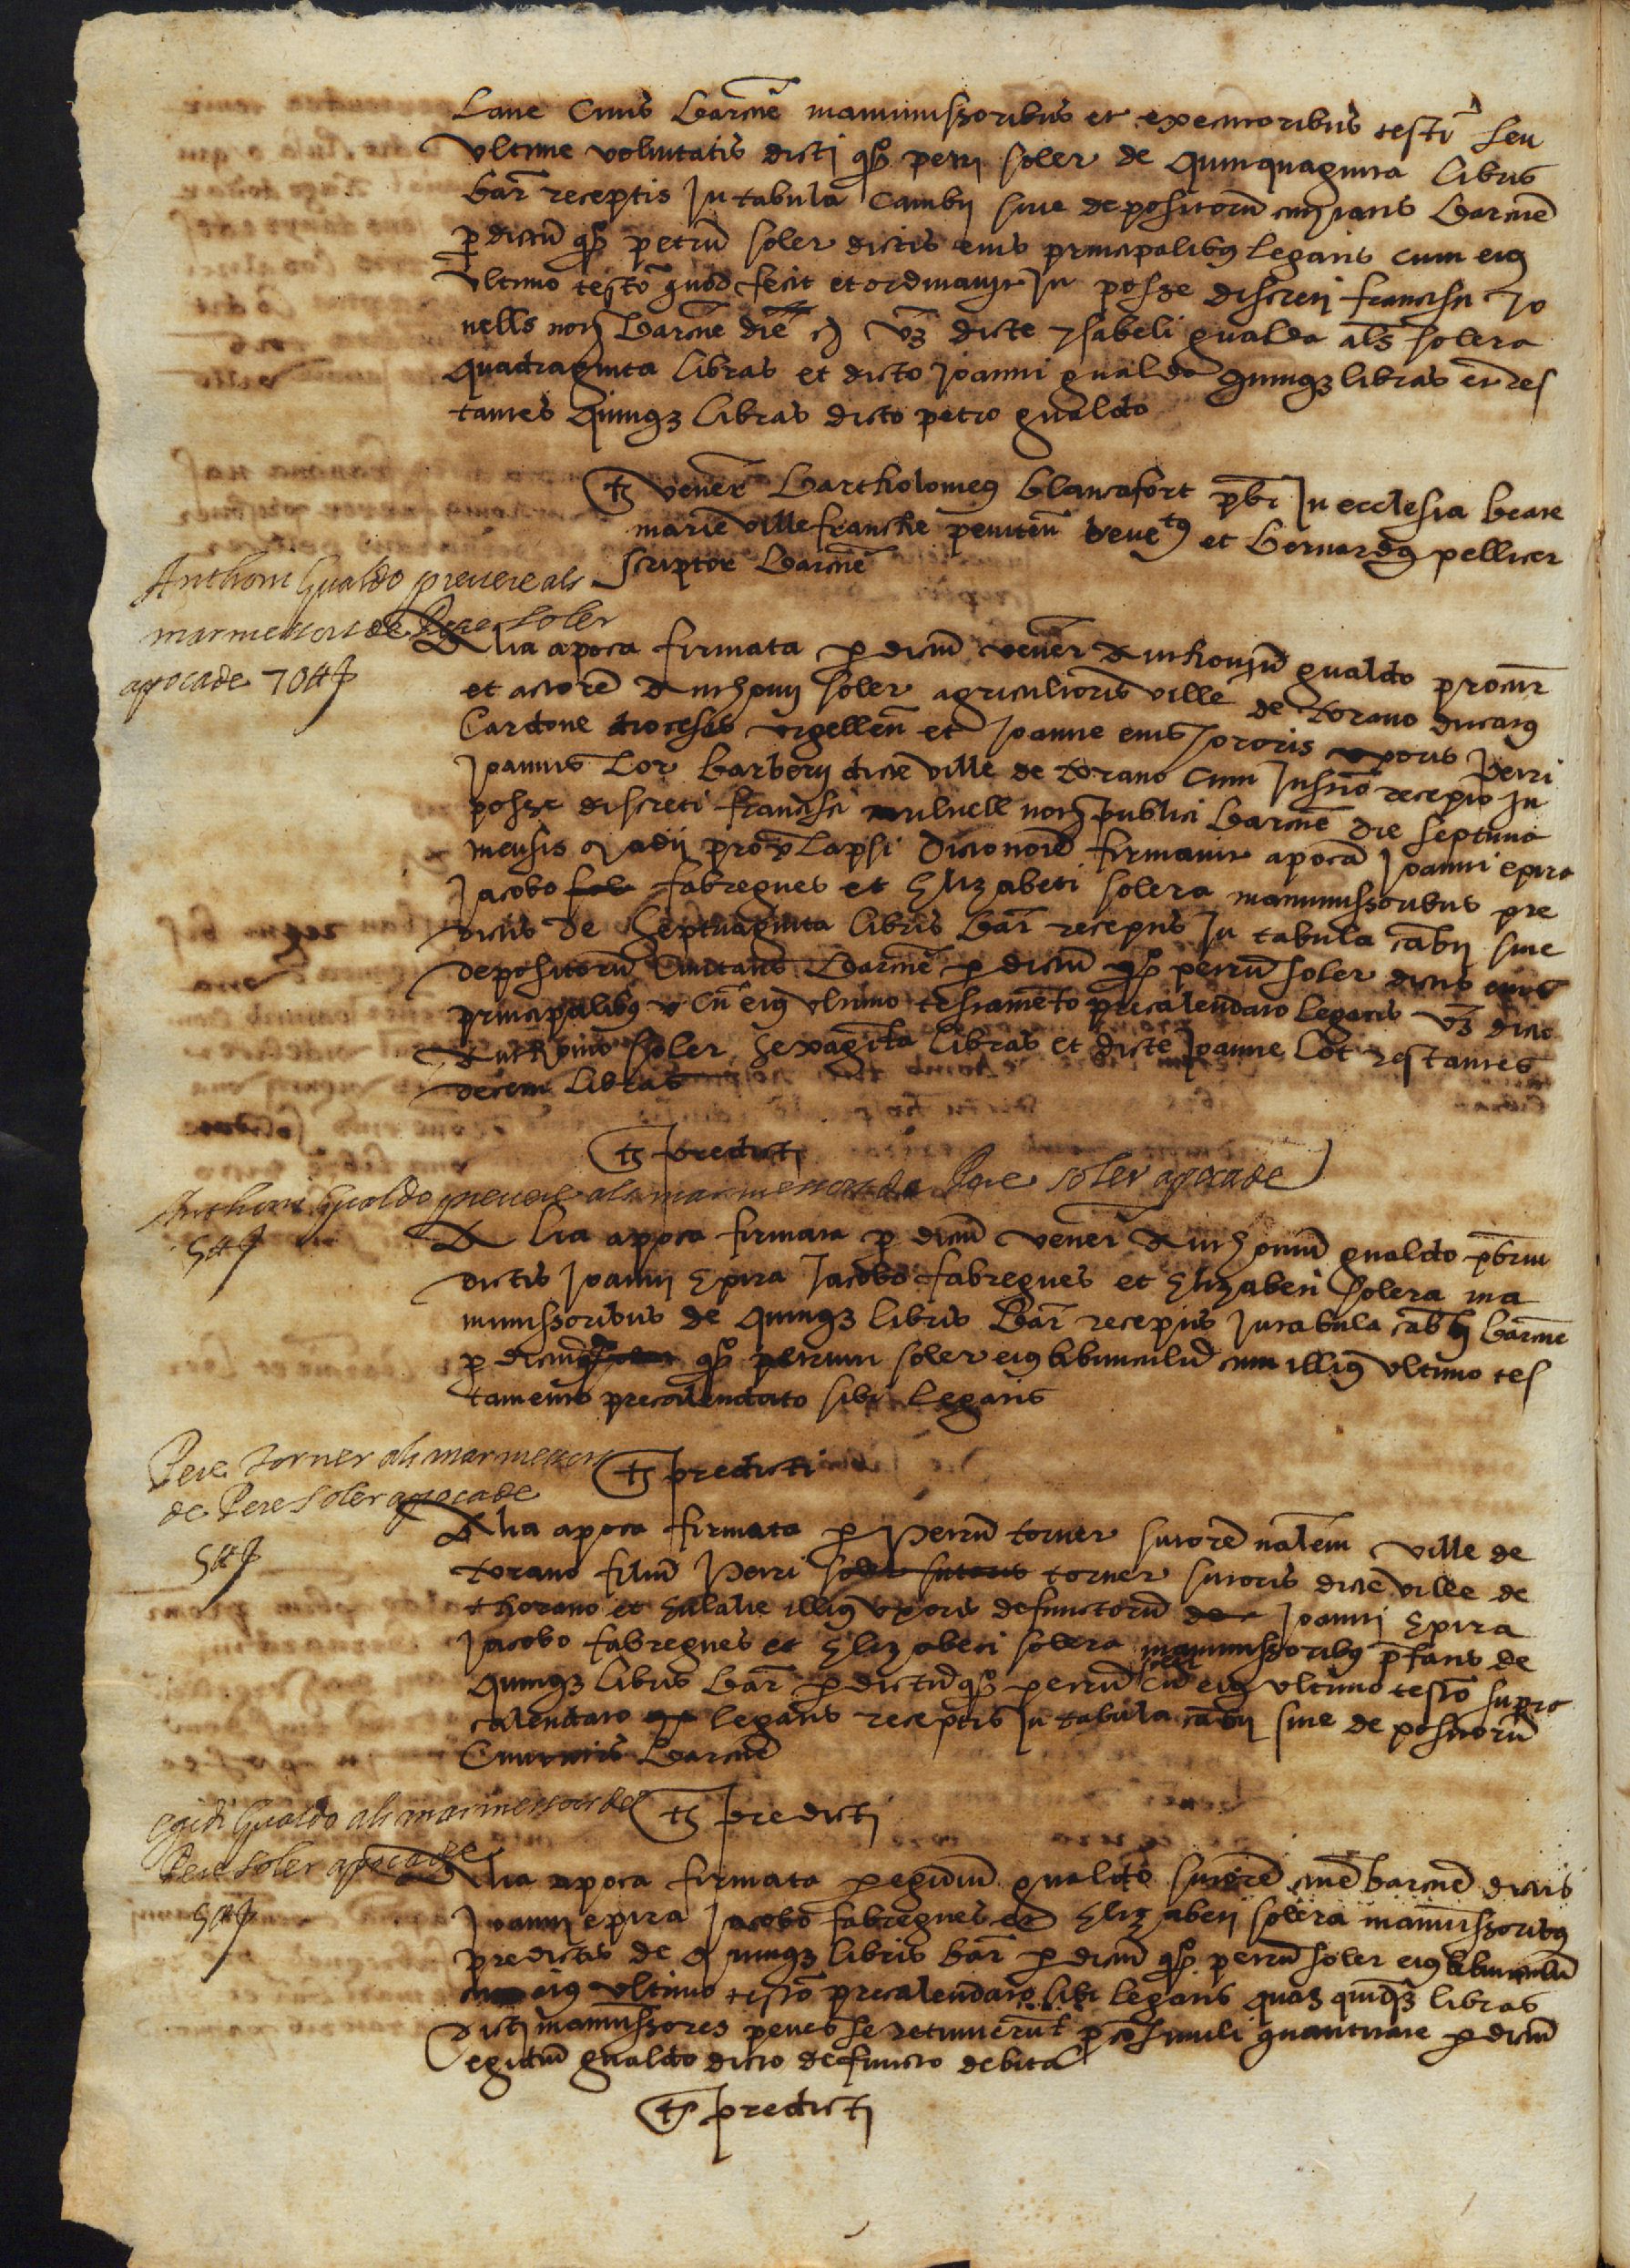 lane Civis barcne manumissoribus et executoribus testi seu
ultime voluntatis dicti qo petri soler de quinquaginta libris
bar receptis in tabula cambii sive depositorum civitatis barcne
p dictum qo petrum soler dictis eius principalibus legatis cum eius
ultimo testo quod fecit et ordinavit in posse discreti francisci Jo
nells noti barcne die vz dicte ysabeli gualda als solera
quadraginta libras et dicto Joanni gualdo quinqz libras et res
tantes quinqz libras dicto petro gualdo
ts vener bartholomeus blancafort pbr in ecclesia beate
marie ville franche peniten benetus et bernardus pellicer
scriptor barcne
Anthoni Gualdo prevere als
marmessors de Pere soler
apoca de 70 ℔
Alia apoca firmata p dictum vener Anthonium gualdo procur
et actore Anthonii soler agricultoris ville de torano ducatus
Cardone diocesis urgellen et Joanne eius sororis uxoris petri
Joannis Lor barberii dicte ville de torano cum instro recepto in
posse discreti francisci mulnell noti publici barcne die septima
mensis madii prox lapsi Dicto noie firmavit apoca Joanni epira
Jacobo fab fabregues et Elizabeti solera manumissoribus pre
dictis de septuaginta libris bar receptis in tabula cabii sive
depositorum Civitatis barcne p dictum qo petrum soler dictis eius
principalibus cu eius ultimo testamento precalendato legatis vz dicto
Anthonio soler sexaginta libras et dicte Joanne Lor restantes
decem libras
ts predicti
Anthoni Gualdo prevere als marmessors de Pere soler apoca de
5 ℔
Alia apoca firmata p dictum vener Anthonium gualdo pbrum
dictis Joanni Epira Jacobo fabregues et Elizabeti solera ma
numissoribus de quinqz libris bar receptis in tabula cabii barcne
p dictum qo petrum soler eius abunculum cum illius ultimo tes
tamento precalendato sibi legatis
Pere torner als marmessors
de Pere soler apoca de
5 ℔
ts predicti
Alia apoca firmata p Petrum torner sutorem nalem ville de
torano filium Petri soler sutoris torner sutoris dicte ville de
thorano et Eulalie illius uxoris defunctorum de Joanni Epira
Jacobo fabregues et Elizabeti solera manumissoribus pfatis de
quinqz libris bar p dictum qo petrum soler cu eius ultimo testo supra
calendato legatis receptis in tabula cabii sive depositorum
Civitatis barcne
ts predicti
Egidi Gualdo als marmessors de
Pere soler apoca de
5 ℔
Alia apoca firmata p egidium gualdo sutore cive barcne dictis
Joanni epira Jacobo fabregues et Elizabeti solera manumissoribus
predictis de quinqz libris bar p dictum qo petrum soler eius abunculum
cum eius ultimo testo precalendato sibi legatis quas quinqz libras
dicti manumissores penes se retinuerunt p consimili quantitate p dictum
egidium gualdo dicto defuncto debita
ts predicti